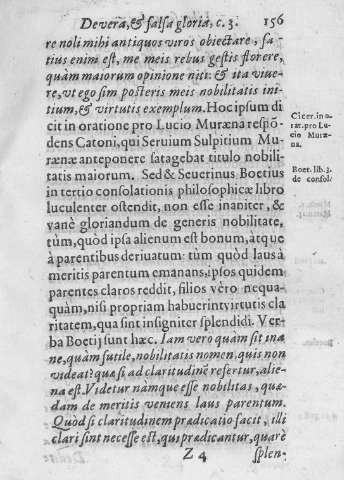 De vera, & falsa gloria, c. 3. 156
re noli mihi antiquos viros obiectare, sa-
tius enim est, me meis rebus gestis florere,
quàm maiorum opinione niti: & ita viue-
re, vt ego sim posteris meis nobilitatis ini-
tium, & virtutis exemplum. Hoc ipsum di
cit in oratione pro Lucio Muræna respõ-
dens Catoni, qui Seruium Sulpitium Mu-
rænæ anteponere satagebat titulo nobili-
tatis maiorum. Sed & Seuerinus Boetius
in tertio consolationis philosophicæ libro
luculenter ostendit, non esse inaniter, &
vanè gloriandum de generis nobilitate,
tùm, quòd ipsa alienum est bonum, atque
à parentibus deriuatum: tùm quòd laus à
meritis parentum emanans, ipsos quidem
parentes claros reddit, filios vèro nequa-
quàm, nisi propriam habuerint virtutis cla
ritatem, qua sint insigniter splendidi. Ver-
ba Boetij sunt hæc. Iam vero quàm sit ina
ne, quàm futile, nobilitatis nomen, quis non
videat? quæ si ad claritudinẽ refertur, alie-
na est. Videtur namque esse nobilitas, quæ-
dam de meritis veniens laus parentum.
Quòd si claritudinem prædicatio facit, illi
clari sint necesse est, qui prædicantur, quarè
Z 4 splen-
Cicer. in o-
rat. pro Lu
cio Muræ-
na.
Boet. lib. 3.
de consol.